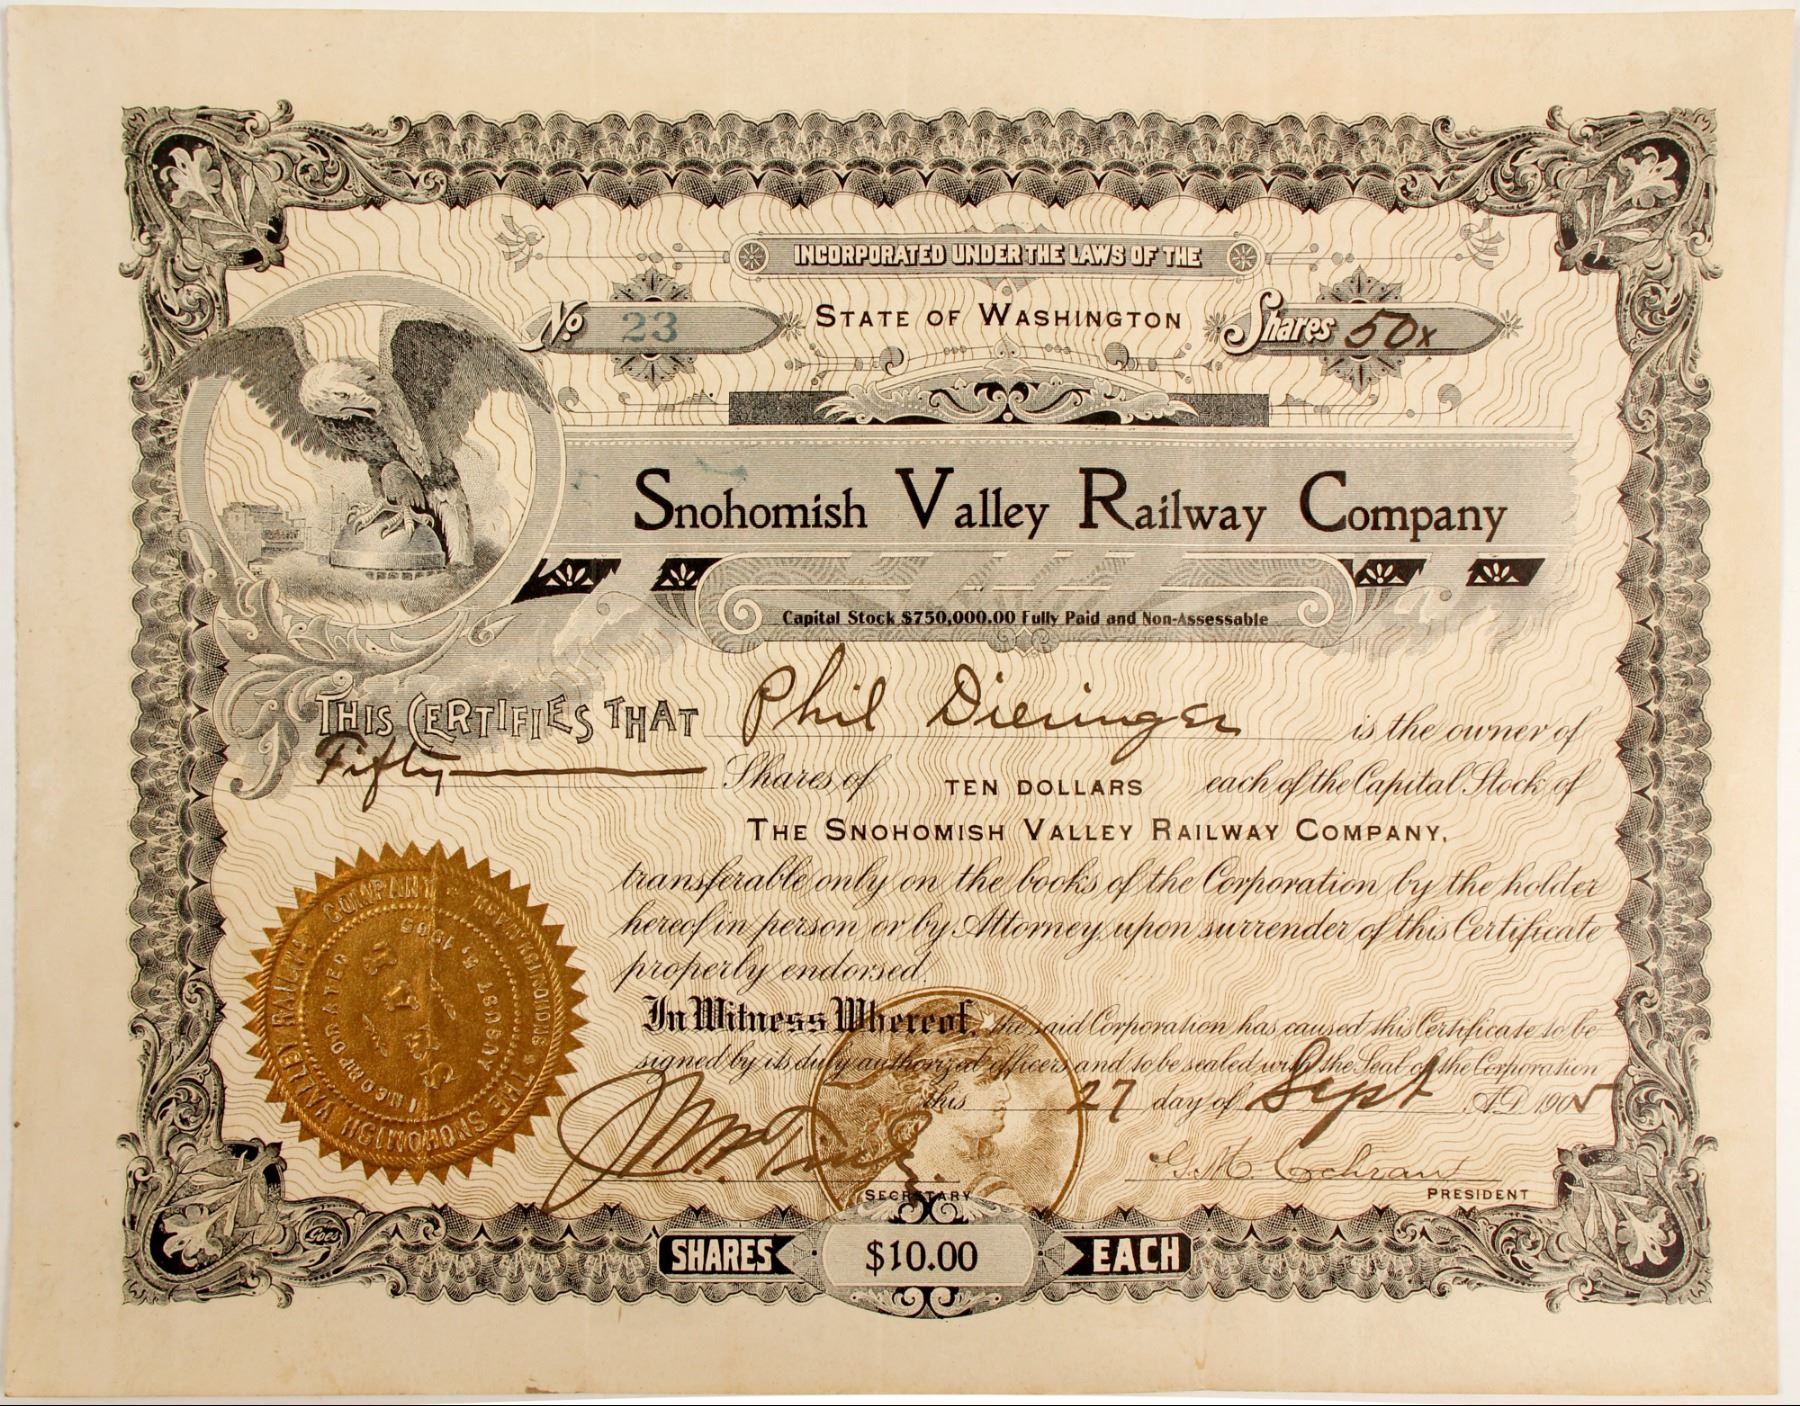 INCORPORATED UNDER THE LAWS OF THE
No 23
STATE OF WASHINGTON
Shares 50x
Snohomish Valley Railway Company
Capital Stock $750,000.00 Fully Paid and Non-Assessable
THIS CERTIFIES THAT Phil Dieringer is the owner of
Fifty Shares of TEN DOLLARS each of the Capital Stock of
THE SNOHOMISH VALLEY RAILWAY COMPANY,
transferable only on the books of the Corporation by the holder
hereof in person or by Attorney, upon surrender of this Certificate
properly endorsed.
In Witness Whereof, the said Corporation has caused this Certificate to be
signed by its duly authorized officers and to be sealed with the Seal of the Corporation
this 27 day of Sept A.D. 1905
G. M. Cochran
SECRETARY
PRESIDENT
THE SNOHOMISH VALLEY RAILWAY COMPANY
INCORPORATED
AUGUST 5, 1905
SEAL
Goes
SHARES $10.00 EACH